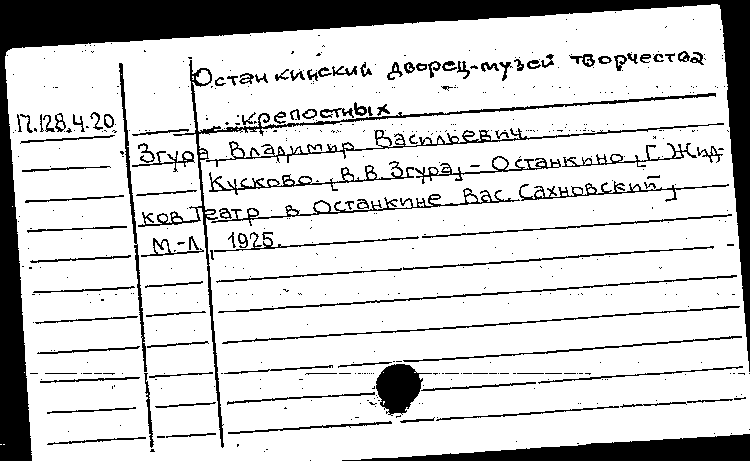 Останкинский дворец-музей творчества
крепостных.
П.128.4.20
Згура, Владимир Васильевич.
Кусково. [В.В. Згура] - Останкино [Г. Жид-
ков] Театр в Останкине [Вас. Сахновский]
М.-Л., 1925.